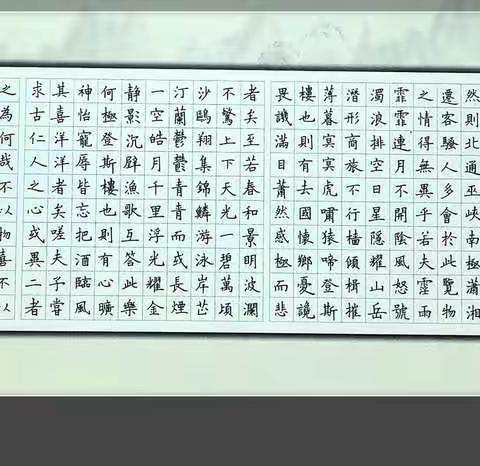 然則北通巫峽南極瀟湘
遷客騷人多會於此覽物
之情得無異乎若夫霪雨
霏霏連月不開陰風怒號
濁浪排空日星隱耀山岳
潛形商旅不行檣傾楫摧
薄暮冥冥虎嘯猿啼登斯
樓也則有去國懷鄉憂讒
畏譏滿目蕭然感極而悲
者矣至若春和景明波瀾
不驚上下天光一碧萬頃
沙鷗翔集錦鱗游泳岸芷
汀蘭鬱鬱青青而或長煙
一空皓月千里浮光耀金
靜影沉璧漁歌互答此樂
何極登斯樓也則有心曠
神怡寵辱皆忘把酒臨風
其喜洋洋者矣嗟夫予嘗
求古仁人之心或異二者
之為何哉不以物喜不以